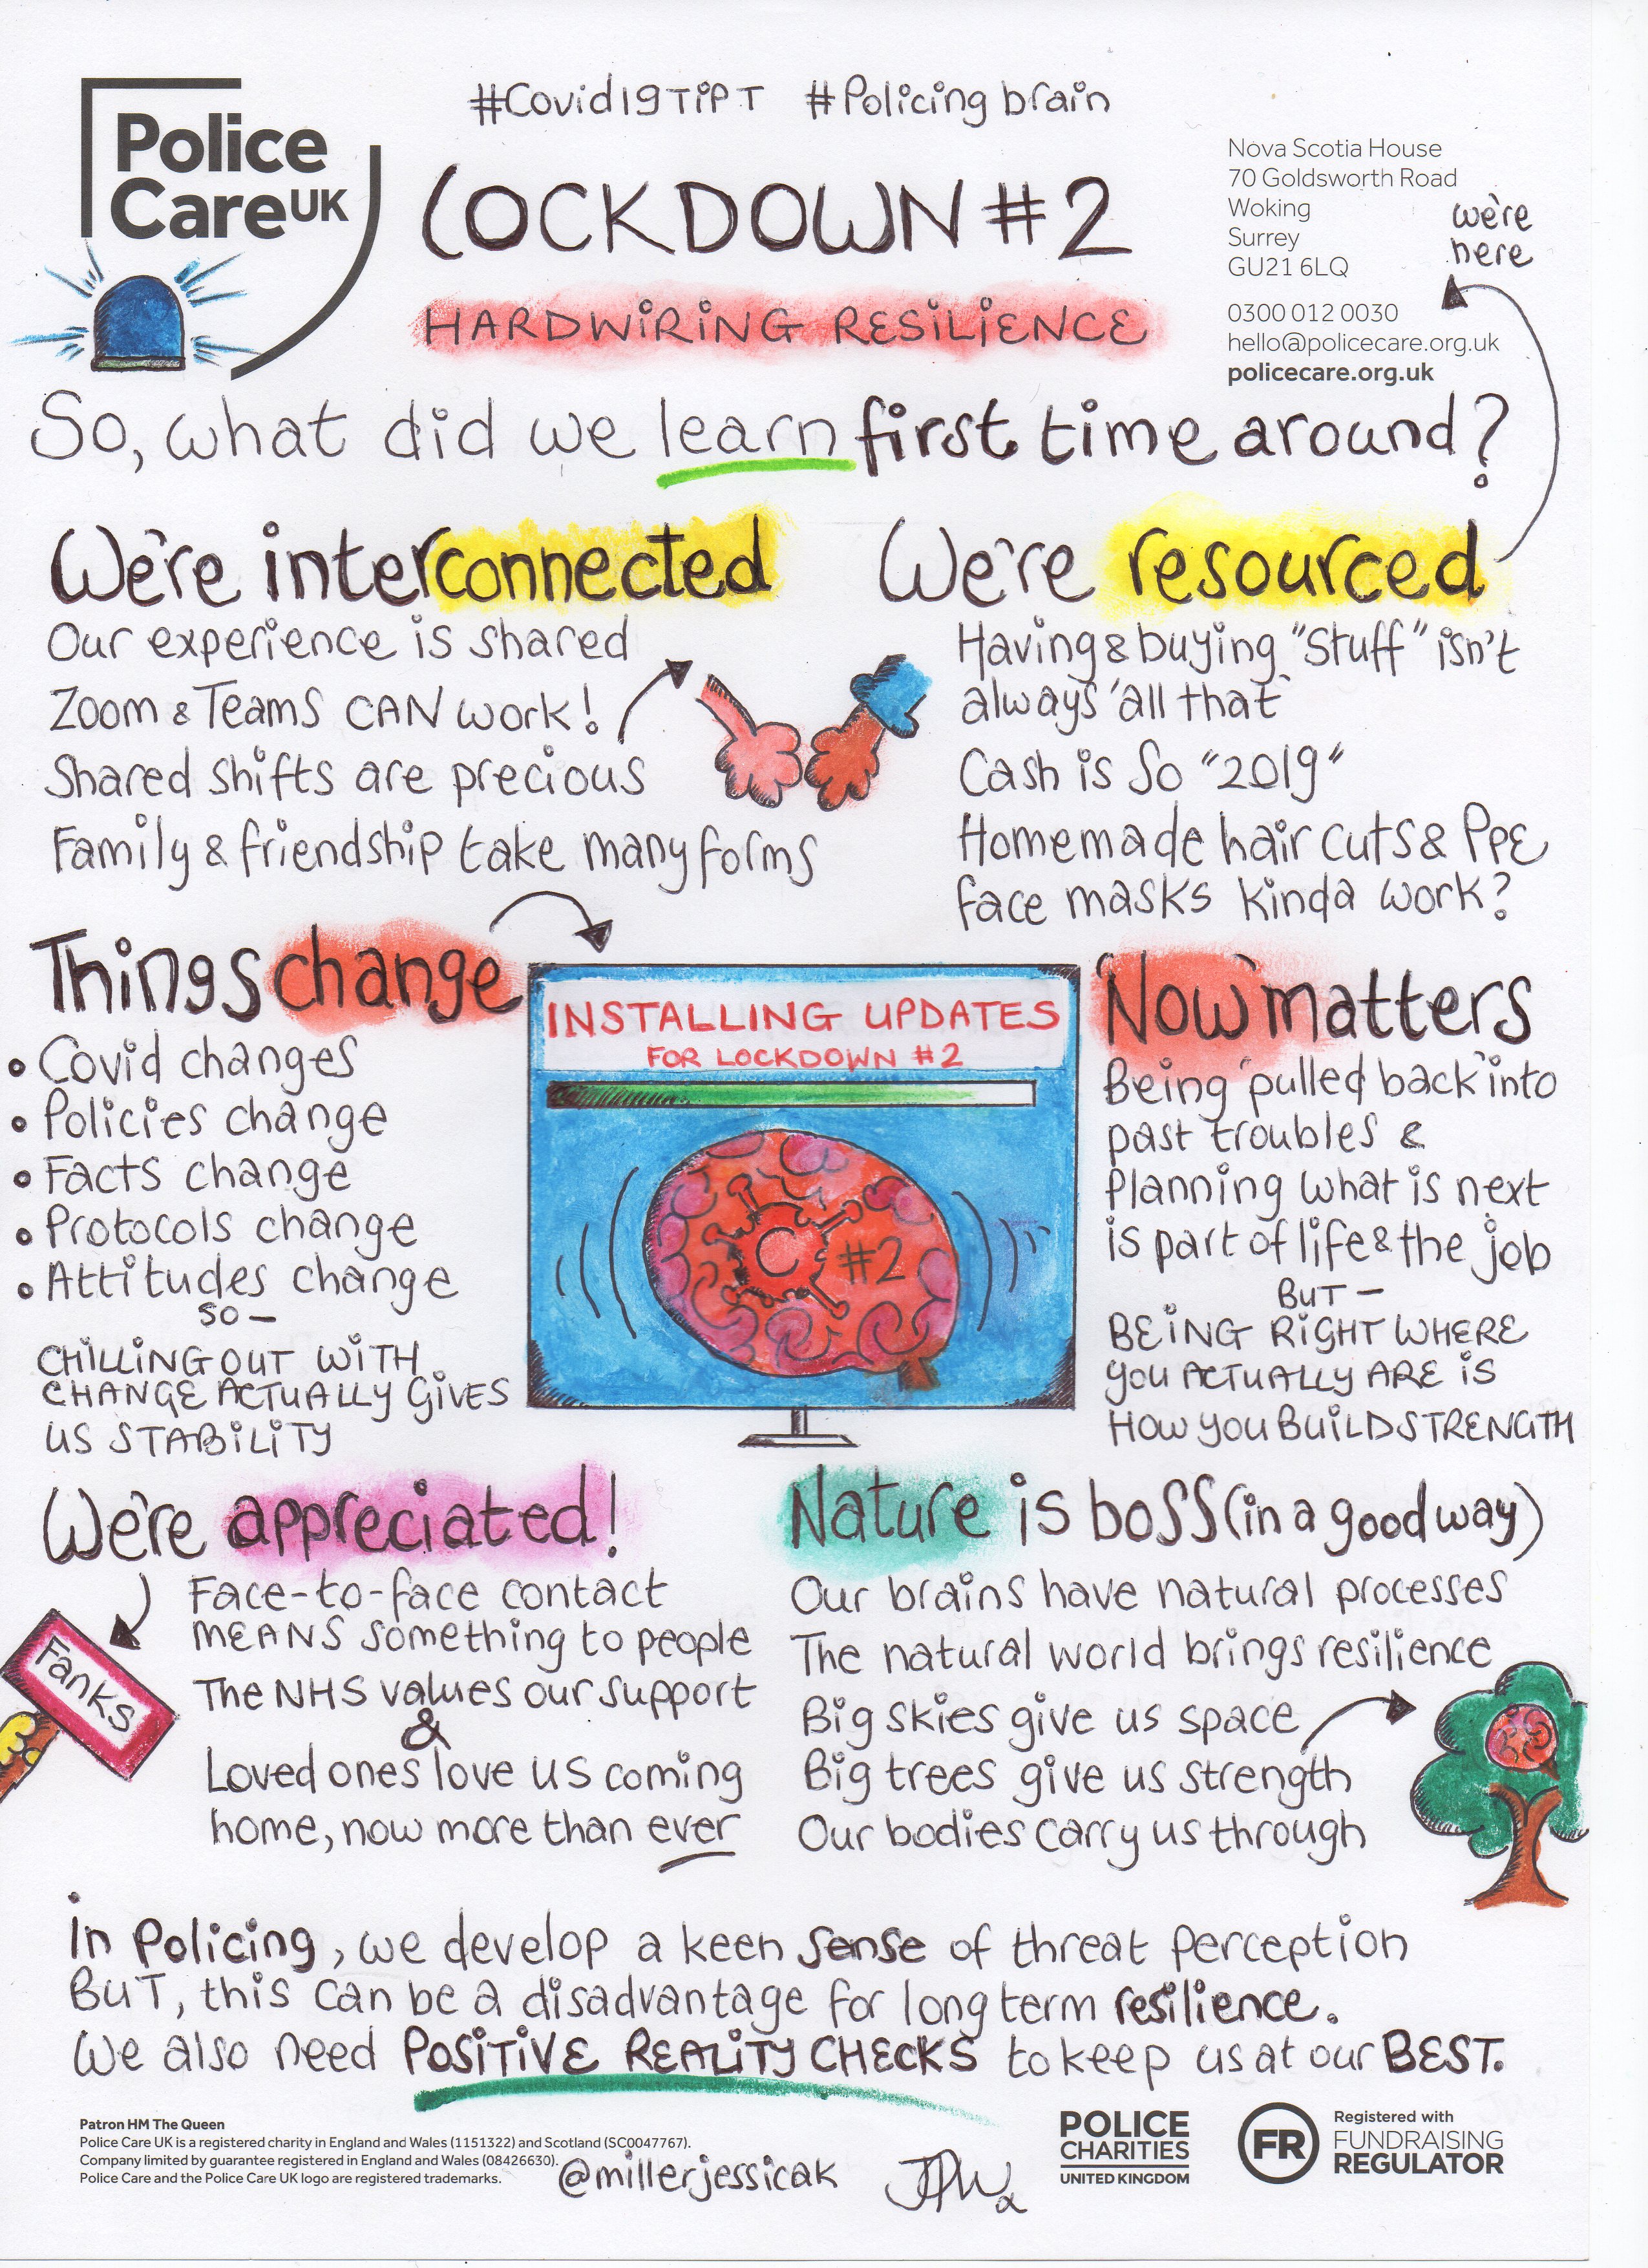 #Covid19TiPT #Policing brain
Police
Care UK
Nova Scotia House
70 Goldsworth Road
Woking
Surrey
GU21 6LQ
we're
here
0300 012 0030
hello@policecare.org.uk
policecare.org.uk
LOCKDOWN #2
HARDWIRING RESILIENCE
So, what did we learn first time around?
We're interconnected
Our experience is shared
Zoom & Teams CAN work!
Shared shifts are precious
Family & friendship take many forms
We're resourced
Having & buying "Stuff" isn't
always 'all that'
Cash is so "2019"
Homemade hair cuts & PPE
face masks kinda work?
Things change
• Covid changes
• Policies change
• Facts change
• Protocols change
• Attitudes change
SO —
CHILLING OUT WITH
CHANGE ACTUALLY GIVES
US STABILITY
INSTALLING UPDATES
FOR LOCKDOWN #2
C #2
'Now' matters
Being 'pulled back' into
past troubles &
Planning what is next
is part of life & the job
BUT —
BEING RIGHT WHERE
YOU ACTUALLY ARE IS
HOW YOU BUILD STRENGTH
We're appreciated!
Fanks
Face-to-face contact
MEANS something to people
The NHS values our support
&
Loved ones love us coming
home, now more than ever
Nature is boss (in a good way)
Our brains have natural processes
The natural world brings resilience
Big skies give us space
Big trees give us strength
Our bodies carry us through
In Policing, we develop a keen sense of threat perception
BUT, this can be a disadvantage for long term resilience.
We also need POSITIVE REALITY CHECKS to keep us at our BEST.
Patron HM The Queen
Police Care UK is a registered charity in England and Wales (1151322) and Scotland (SC0047767).
Company limited by guarantee registered in England and Wales (08426630).
Police Care and the Police Care UK logo are registered trademarks.
@millerjessicak
POLICE
CHARITIES
UNITED KINGDOM
FR
Registered with
FUNDRAISING
REGULATOR